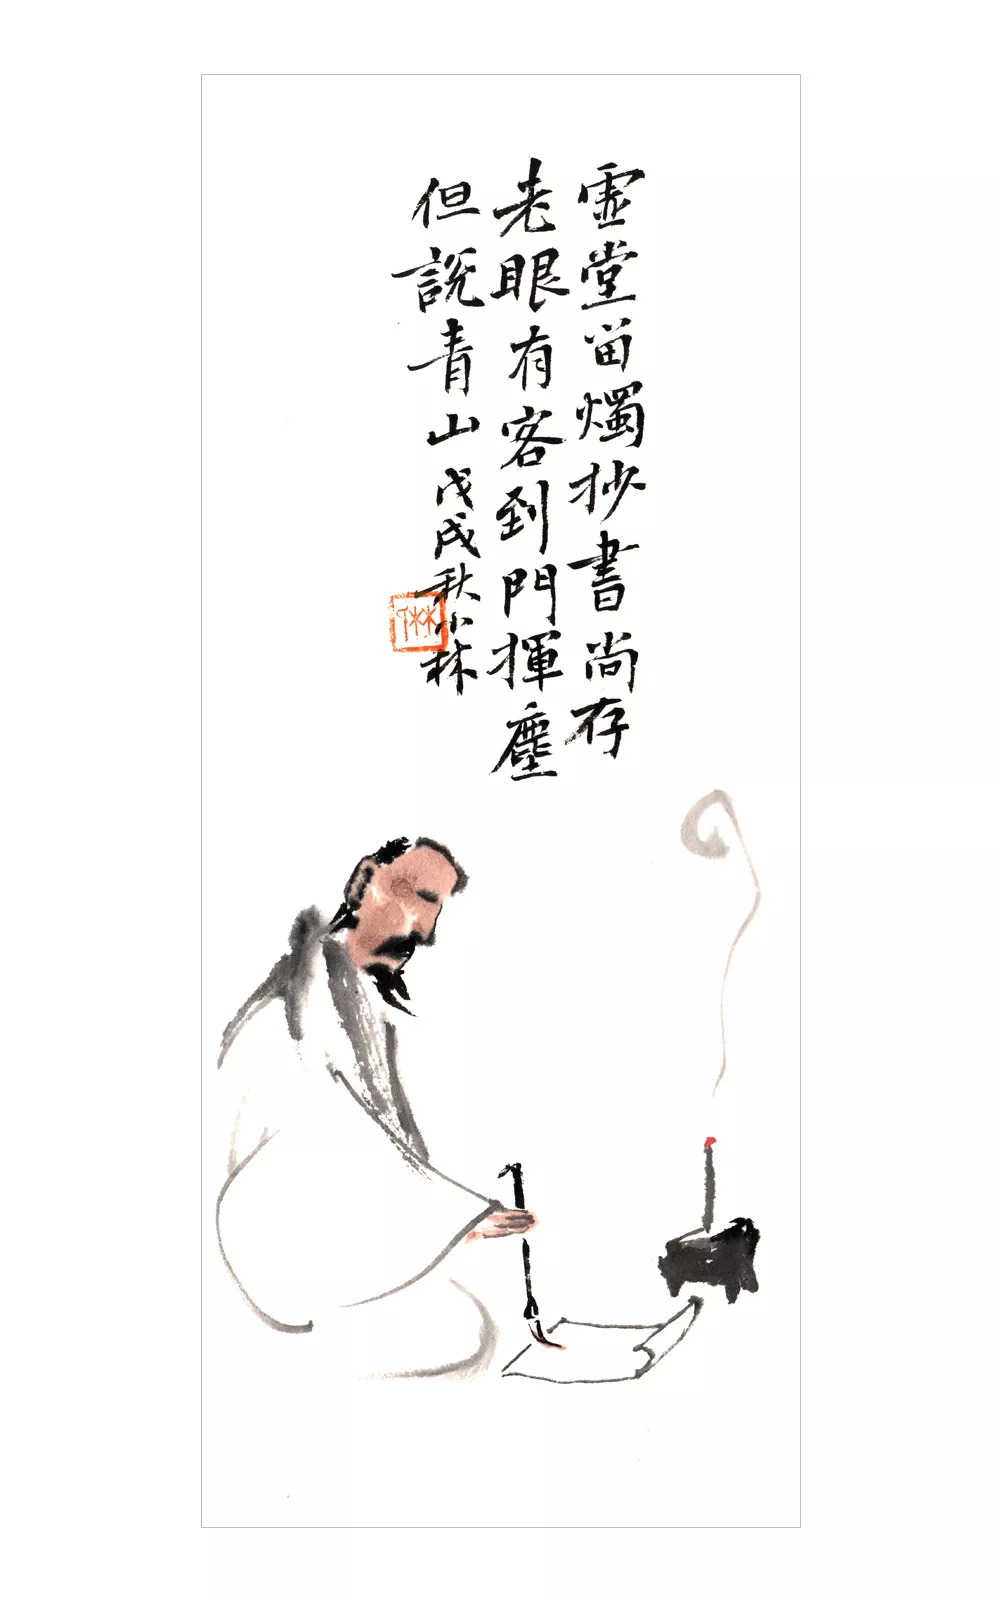 虛堂留燭抄書尚存
老眼有客到門揮塵
但説青山戊戌秋小林